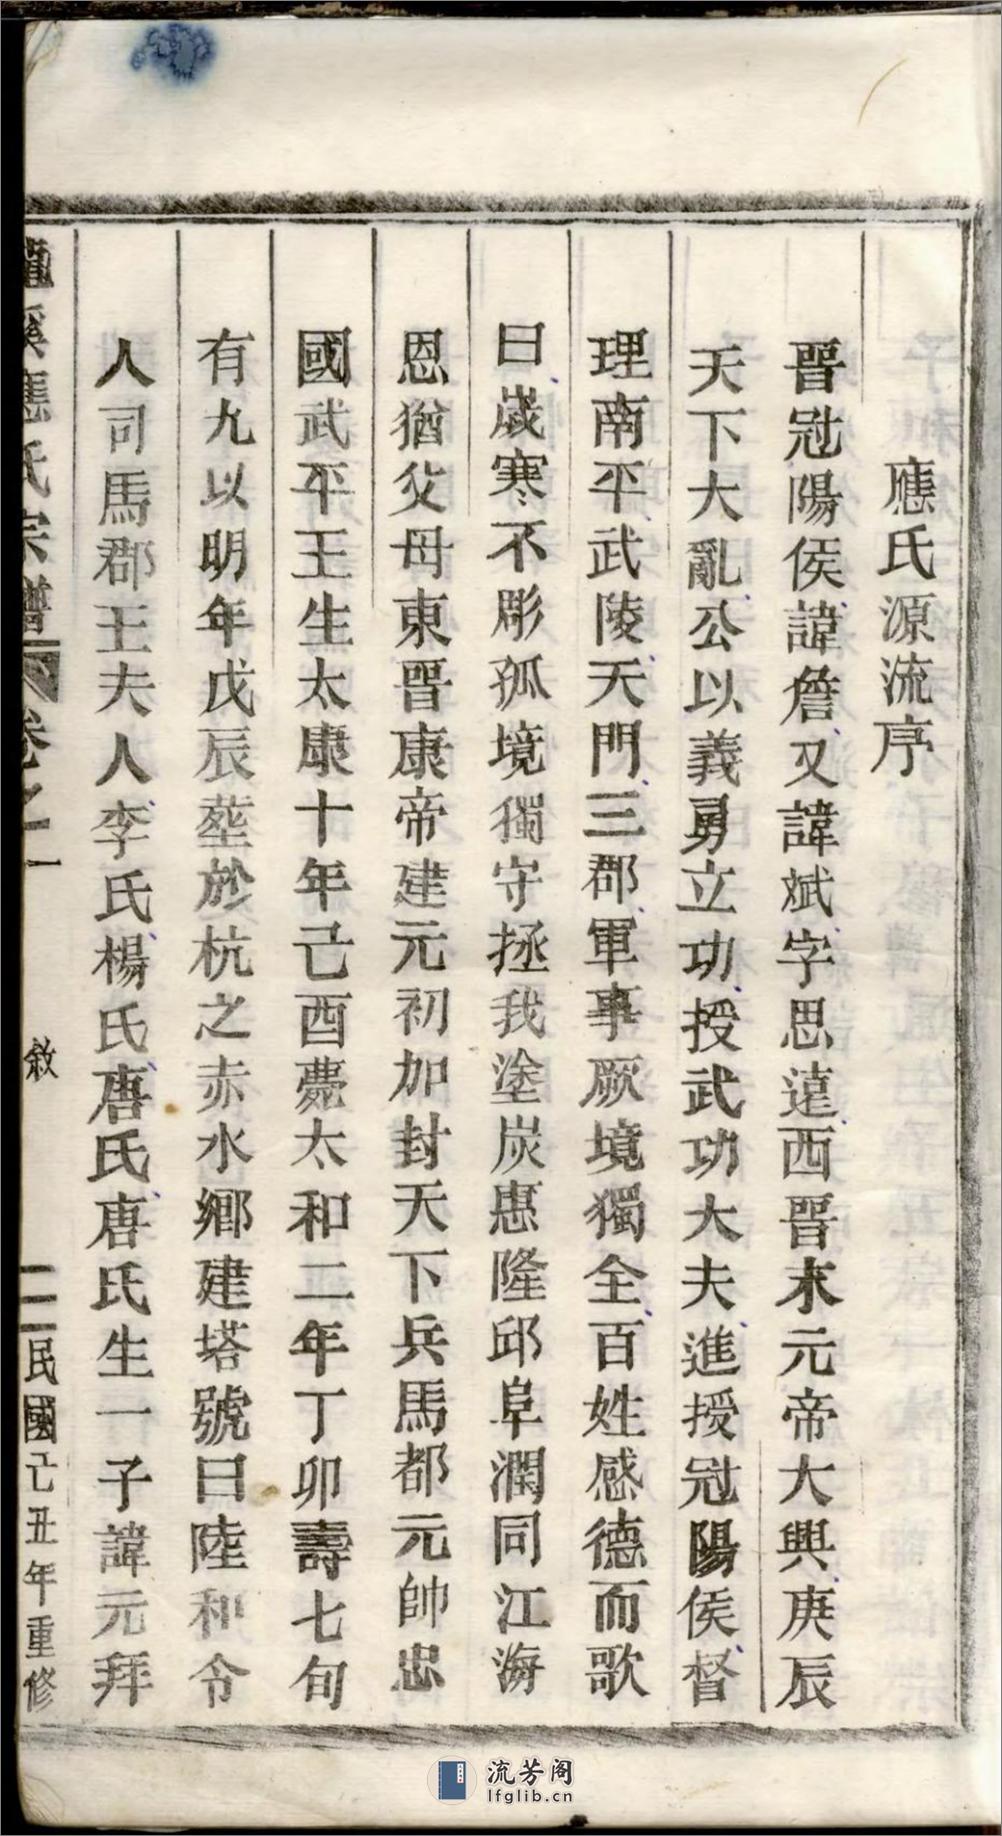 應氏源流序
晉冠陽侯諱詹又諱斌字思遠西晉末元帝大興庚辰
天下大亂公以義勇立功授武功大夫進授冠陽侯督
理南平武陵天門三郡軍事厥境獨全百姓感德而歌
曰歲寒不彫孤境獨守拯我塗炭惠隆邱阜潤同江海
恩猶父母東晉康帝建元初加封天下兵馬都元帥忠
國武平王生太康十年己酉薨太和二年丁卯壽七旬
有九以明年戊辰塟於杭之赤水鄉建塔號曰陸和令
人司馬郡王夫人李氏楊氏唐氏唐氏生一子諱元拜
溪應氏宗譜 卷之一 敘 二 民國己丑年重修
流芳阁
lfglib.cn